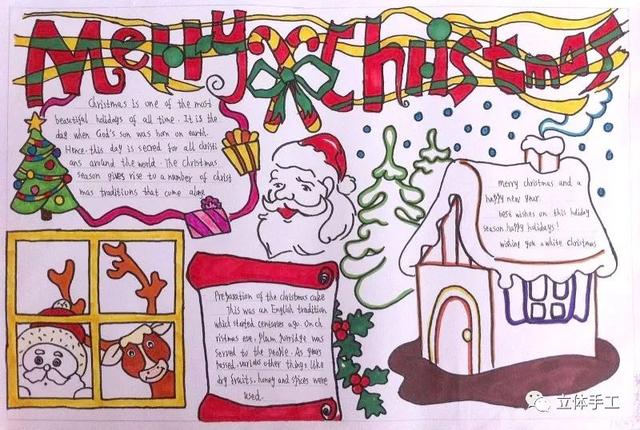 Merry Christmas
Christmas is one of the most
beautiful holidays of all time. It is the
day when God's son was born on earth.
Hence this day is secred for all christi
ans around the world. The christmas
season gives rise to a number of christ
mas traditions that come alone
merry christmas and a
happy new year.
best wishes on this holiday
season. happy holidays!
wishing you a white christmas
Preparation of the christmas cake
This was an English tradition
which started centuries ago. On ch
ristmas eve, plum porridge was
served to the people. As years
passed, various other things like
dry fruits, honey and spices were
used.
立体手工